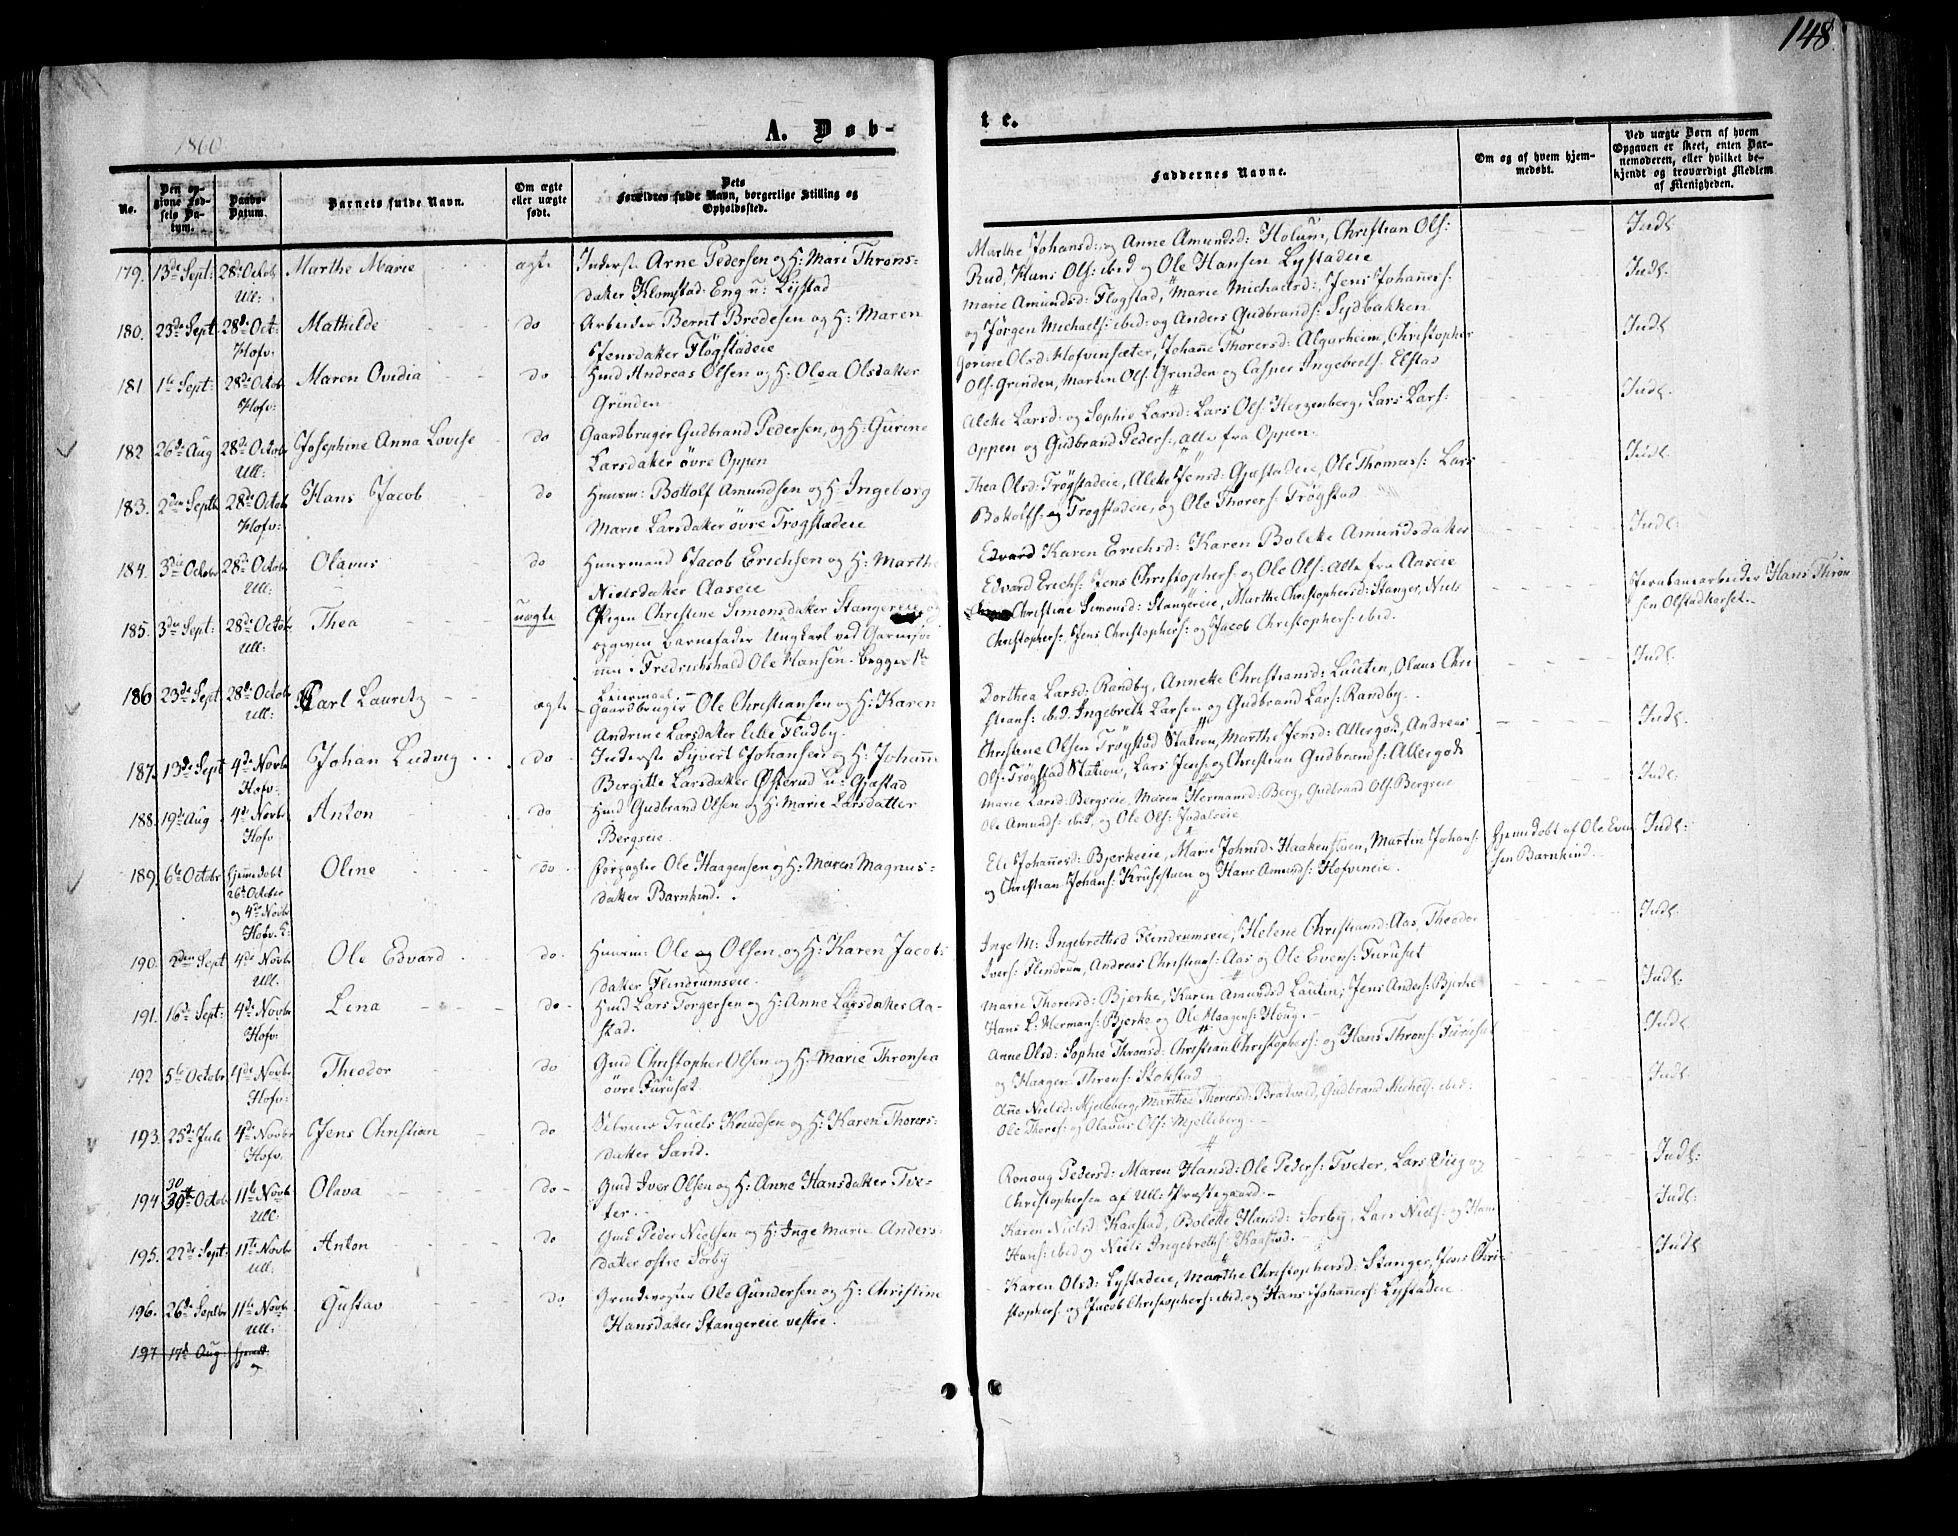 148
1860
A. Døb-
te.
No.
Den op-
givne Fød-
sels Da-
tum.
Daabs-
Datum.
Barnets fulde Navn.
Om ægte
eller uægte
født.
Dets
Forældres fulde Navn, borgerlige Stilling og
Opholdssted.
Faddernes Navne.
Om og af hvem hjem-
medøbt.
Ved uægte Børn af hvem
Opgaven er skeet, enten Bar-
nemoderen, eller hvilket be-
kjendt og troværdigt Medlem
af Menigheden.
179. 13de Sept: 28de Octob Ull: Marthe Marie ægte
Inderste Arne Pedersen og H: Mari Throns-
datter Klomstad: Eng u: Lystad
Marthe Johansd: og Anne Amundsd: Holum, Christian Ols:
Rud, Hans Ols: ibid og Ole Hansen Lystadeie
Indl
180. 23de Sept 28de Oct: Hofv: Mathilde do
Arbeider Bernt Bredesen og H: Maren
Jensdatter Flogstadeie
Marie Amundsd: Flogstad, Marie Michaelsd:, Jens Johannes:
og Jørgen Michaels: ibid: og Anders Gudbrands: Lydbakken
Indl.
181 1te Sept: 28de Octob Hofv: Maren Ovidia do
Hmd Andreas Olsen og H. Olea Olsdatter
Grinden
Gorine Olsd: Hofvinsæter, Johanne Thorersd: Algarheim, Christopher
Ols: Grinden, Martin Ols: Grinden og Casper Ingebrets: Elstad
Indl
182 26de Aug 28de Octob Ull: Josephine Anna Lovise do
Gaardbruger Gudbrand Pedersen, og H: Gurine
Larsdatter øvre Oppen
Alette Larsd: og Sophie Larsd: Lars Ols: Herzenberg, Lars Lars:
Oppen og Gudbrand Peders:, alle fra Oppen.
Indl.
183. 2den Septb 28de Octob Hofv: Hans Jacob do
Huusm: Bottolf Amundsen og H. Ingeborg
Marie Larsdatter øvre Trøgstadeie
Thea Olsd: Trøgstadeie, Alette Jensd: Gjæstadeie, Ole Thomas: Lars
Bottolfs: og Trøgstadeie, og Ole Thorers: Trøgstad
Indl.
184. 3die Octobr 28de Octob Ull. Olavus do
Huusmand Jacob Erichsen og H: Marthe
Nielsdatter Aaseie
Edvard Karen Erichsd: Karen Bolette Amundsdatter
Edvard Erichs: Jens Christophers: og Ole Ols: alle fra Aaseie
Indl:
185. 3die Sept: 28de Octob Ull: Thea uægte
Pigen Christine Simonsdatter Stangereie og
opgiven Barnefader Ungkarl ved Garniso
nen i Fredrichshald Ole Hansen. begges 1te
Leiermaal.
Christine Simonsd: Stangereie, Marthe Christophersd: Stanger, Niels
Christophers: Jens Christophers: og Jacob Christophers: ibid.
Jernbanearbeider Hans Thron
sen Olstadkorset.
186 23de Sept 28de Octob Ull: Carl Lauritz ægte
Gaardbruger Ole Christiansen og H: Karen
Andrine Larsdatter Lille Fladby.
Dorthea Larsd: Randby, Annette Christiansd: Lautin, Olaus Chri
stians: ibid. Ingebreth Larsen og Gudbrand Lars: Randby.
Indl.
187. 13de Sept 4de Novbr Hofv: Johan Ludvig do
Inderste Syvert Johansen og H: Johanne
Bergitte Larsdatter Østerud u: Gjæstad
Christine Olsen Trøgstad Station, Marthe Jensd: Allergodt, Andreas
Ols: Trøgstad Station, Lars Jens: og Christian Gudbrands: Allergodt
Indl.
188. 19de Aug 4de Novbr Hofv Anton do
Hmd Gudbrand Olsen og H: Marie Larsdatter
Bergseie
Marie Larsd: Bergseie, Maren Hermansd: Berg, Gudbrand Ols: Bergseie
Ole Amunds: ibid, og Ole Ols: Judalseie
Indl:
189. 6te Octobr Hjemmedøbt 26de October og 4de Novbr Hofv. K: Oline do
Forpagter Ole Haagensen og H: Maren Magnus-
datter Barnkind.
Eli Johannesd: Bjerkeie, Marie Johnsd: Haakenstuen, Martin Johans:
og Christian Johans: Krusestuen og Hans Amunds: Hofvineie.
Hjemmedøbt af Ole Even
sen Barnkind.
Indl:
190. 2den Sept 4de Novbr Ull. Ole Edvard do
Huusm: Ole og Olsen og H: Karen Jacobs:
datter Flindrumseie.
Inge M: Ingebrethsd Flindrumseie, Helene Christiansd: Aas, Theodor
Ivers: Flindrum, Andreas Christians: Aas og Ole Evens: Furuset
Indl:
191. 16de Sept: 4de Novbr Hofv: Lena do
Hmd Lars Torgersen og H: Anne Larsdatter Aa-
stad.
Marie Thorersd: Bjerke, Karen Amundsd Lautin, Jens Anders: Bjerke
Hans L: Hermans: Bjerke og Ole Haagens: Houg.
Indl.
192 5te Octobr 4de Novbr Hofv: Theodor do
Gmd Christopher Olsen og H: Marie Thronsen
øvre Furuset.
Anne Olsd: Sophie Thronsd: Christian Christophers: og Hans Throns: Furuset
og Haagen Throns: Stokstad
Indl
193. 25de Juli 4de Novbr Hofv. Jens Christian do
Truels Knudsen og H: Karen Thorers-
datter Sand.
Anne Nielsd: Mjelleberg, Marthea Thorersd: Bratvold, Gudbrand Michels: ibid:
Ole Thores: og Olavus Ols: Mjelleberg.
Indl.
194 30 30te Octobr 11te Novbr Ull: Olava do
Gmd Iver Olsen og H: Anne Hansdatter Tve-
ter.
Ronoug Pedersd: Maren Hansd: Ole Peders: Tveter, Lars Vieg og
Christophersen af Ull: Præstegaard.
Indl:
195. 22de Sept: 11te Novbr Ull. Anton do
Gmd Peder Nielsen og H: Inge Marie Anders-
datter østre Sørby
Karen Nielsd: Kaastad, Bolette Hansd: Sørby, Lars Niels: og Hans
Hans: ibid og Niels Ingebreths: Kaastad.
Indl:
196. 26de Septbr 11te Novbr Ull: Gustav do
Grindevogter Ole Gundersen og H: Christine
Hansdatter Stangereie vestre.
Karen Olsd: Lystadeie, Marthe Christophersd: Stanger, Jens Chri-
stophers: og Jacob Christophers: ibid, og Hans Johannes: Lystadeie.
Indl
197 17de Aug hjemd og